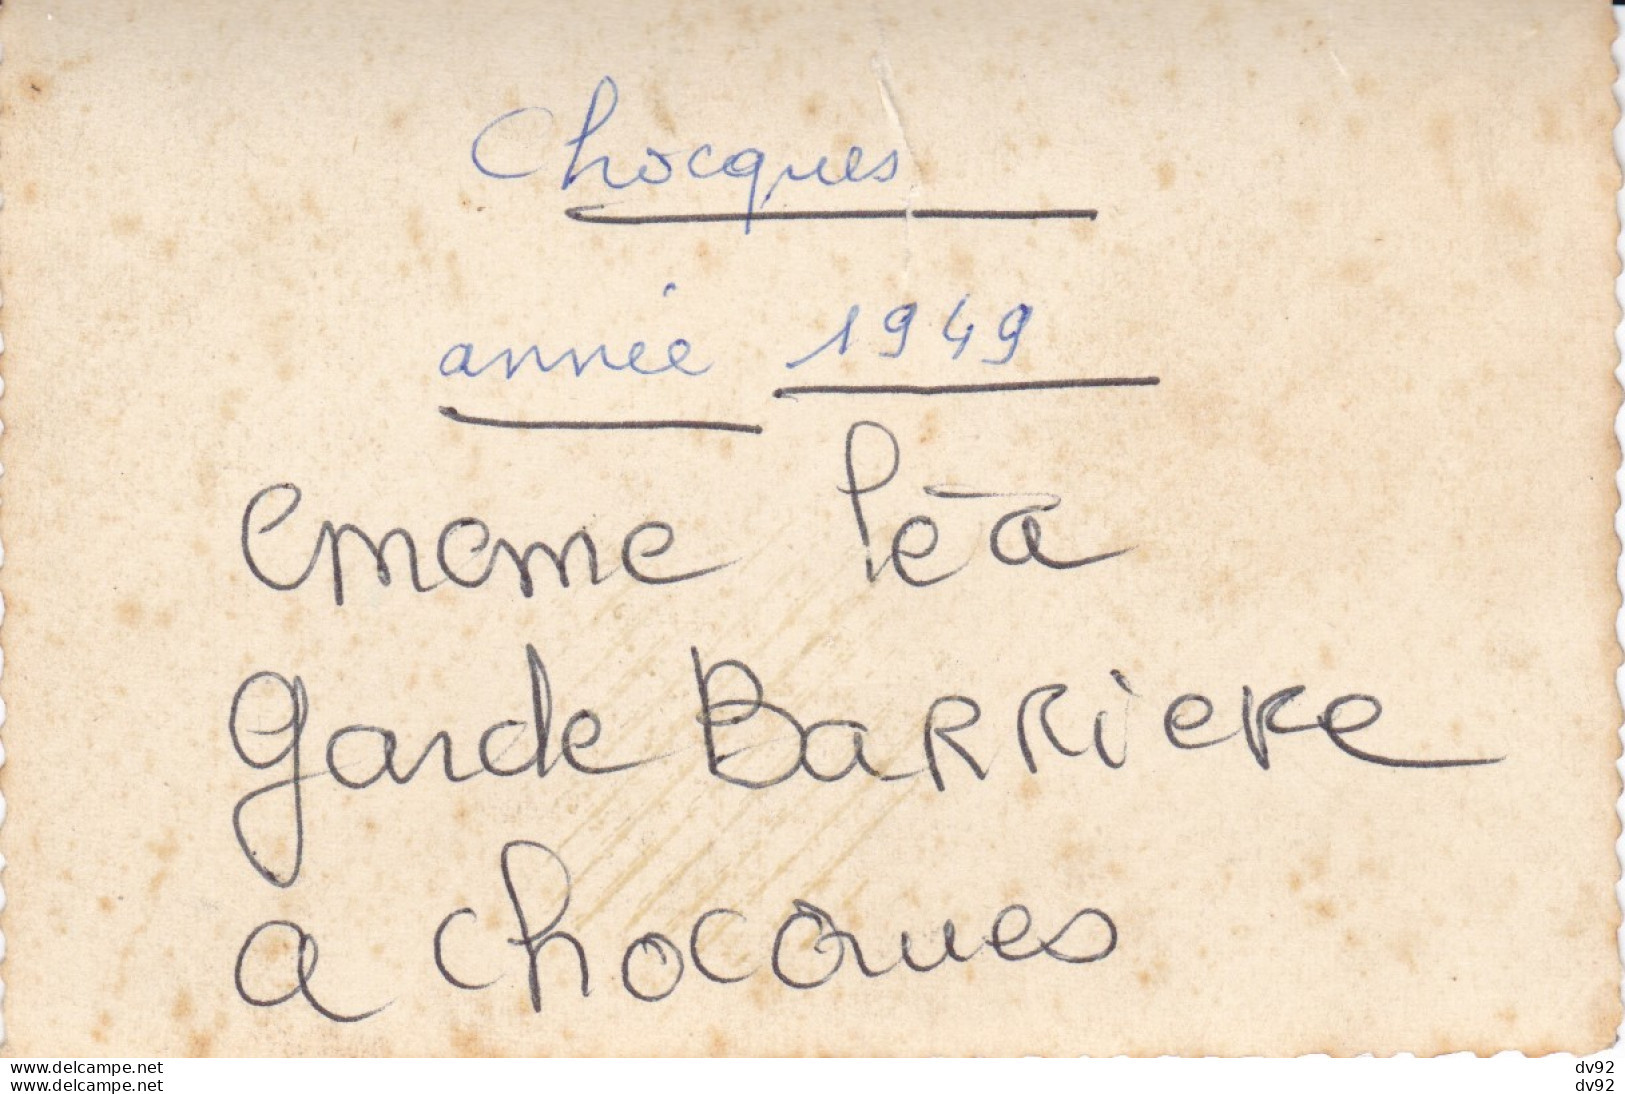 Chocques
année 1949
ememe léa
garde BaRRieRe
a chocques
www.delcampe.net dv92
www.delcampe.net dv92